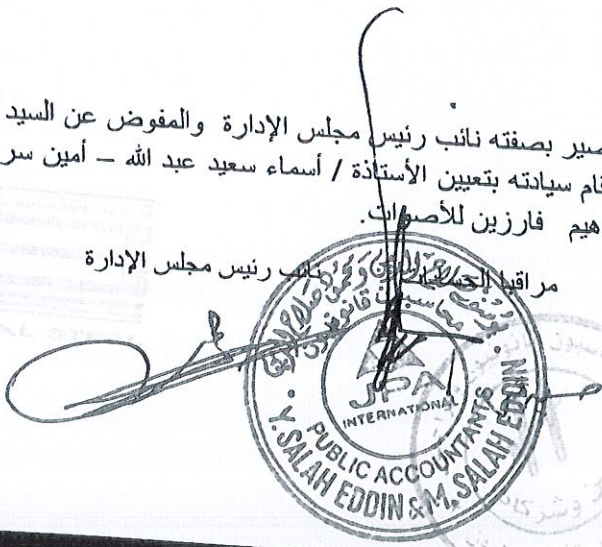 صير بصفته نائب رئيس مجلس الإدارة والمفوض عن السيد
قام سيادته بتعيين الأستاذة / أسماء سعيد عبد الله – أمين سر
هيم فارزين للأصوات.
مراقبا الحسابات نائب رئيس مجلس الإدارة
محاسبون قانونيون
JPA
INTERNATIONAL
PUBLIC ACCOUNTANTS
Y. SALAH EDDIN & M. SALAH EDDIN